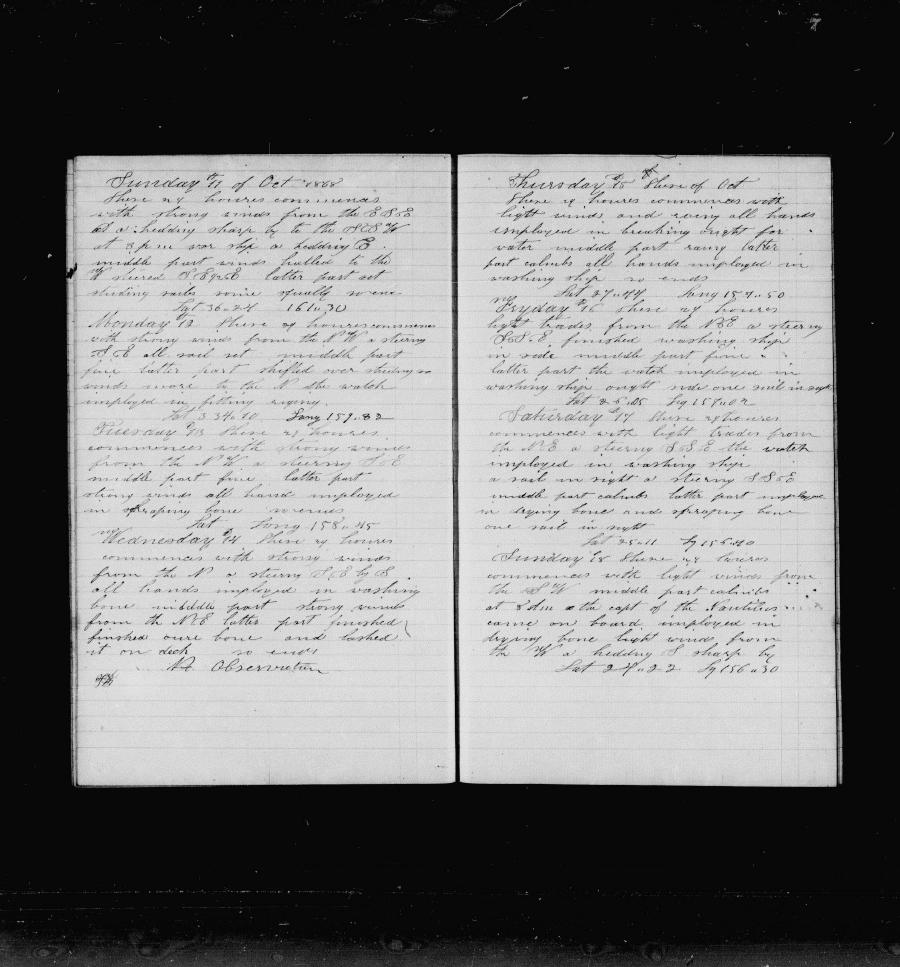 Sunday th 11 of Oct 1868
These 24 houres commences
with strong winds from the E S E
at a hedding sharp by to the S E
at 8 pm wor ship a heddring E
middle part wind halled to the
W steered S E latter part set
studing sails some squally so ens
Lat 36 " 24 161 " 30
Monday 12 these 24 houres commences
with strong winds from the N W a steering
S E all sail set middle part
fine latter part shifted over studing so
winds more to the N the watch
imployed in fitting riging
Lat 34 " 10 Long 159 " 32
Tuesday th 13 these 24 houres
commences with strong winds
from the N W a steering S E
middle part fine latter part
strong winds all hand imployed
in scraping bone so ends
Lat Long 158 " 45
Wednesday th 14 these 24 houres
commences with strong winds
from the N a steering S E by S
all hands imployed in washing
bone middle part strong winds
from the N E latter part finished
finished oure bone and lashed
it on deck so ends
No Observation
Thursday th 15 these of Oct
these 24 houres commences with
light winds and rainy all hands
imployed in breaking oright for
water middle part rainy latter
part calmbs all hands imployed in
washing ship so ends
Lat 27 " 44 Long 157 " 50
Fryday th 16 these 24 houres
light trades from the N E a steering
S S E finished washing ship
in side middle part fine
latter part the watch imployed in
washing ship ought side one sail in sight
Lat 26 " 05 Lg 157 " 02
Saturday th 17 these 24 houres
commences with light trades from
the N E a steering S S E the watch
imployed in washing ship
a sail in sight a steering S S E
middle part calmbs latter part imployed
in drying bone and scraping bone
one sail in sight
Lat 25 " 11 Lg 156 " 40
Sunday 18 these 24 houres
commences with light winds from
the S W middle part calmbs
at 8 am the capt of the Nautilus
came on board imployed in
drying bone light winds from
the W a hedding S sharp by
Lat 24 " 22 Lg 156 " 30